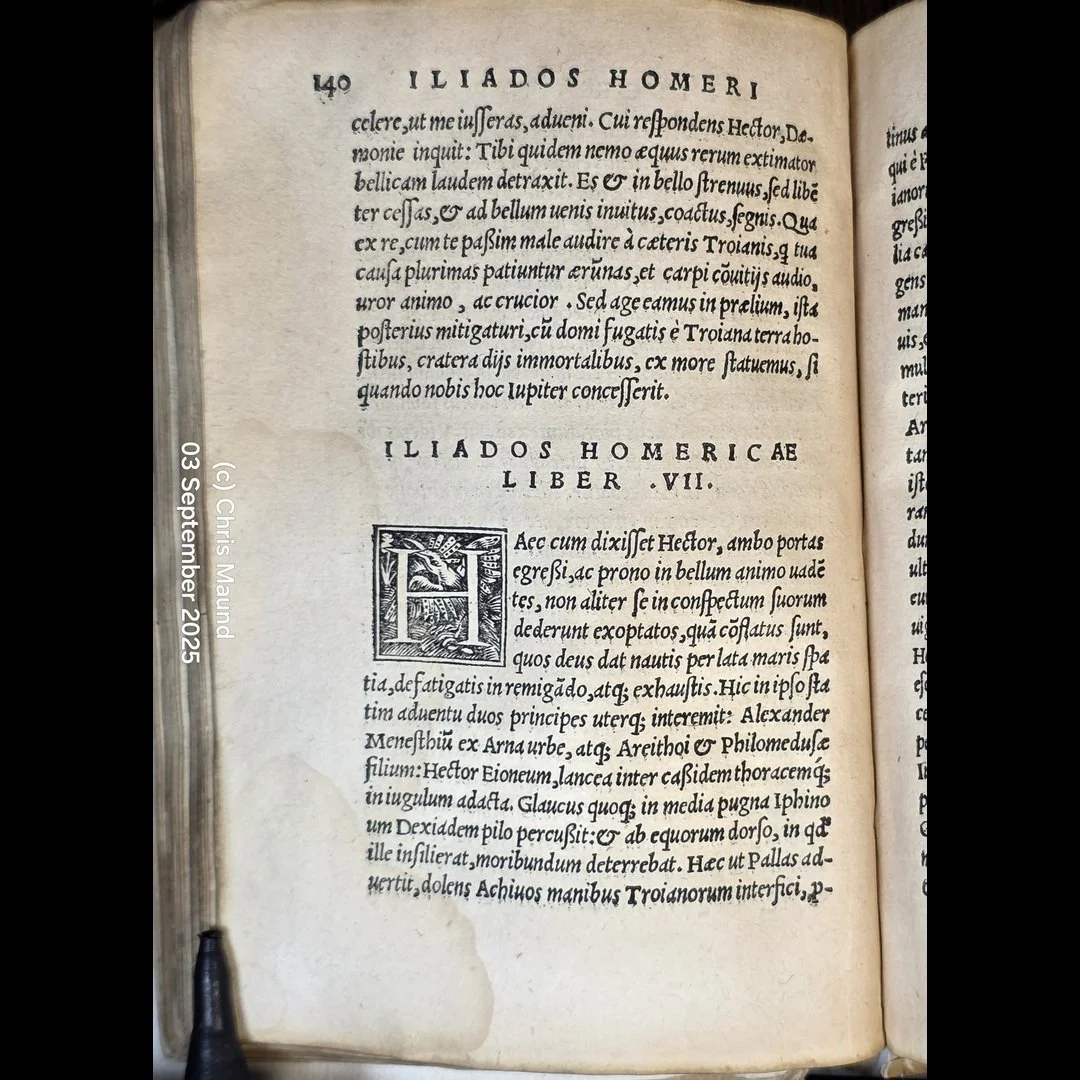 140 ILIADOS HOMERI
celere,ut me iusseras,adueni. Cui respondens Hector,Dæ-
monie inquit: Tibi quidem nemo æquus rerum extimator
bellicam laudem detraxit. Es & in bello strenuus,sed libẽ
ter cessas,& ad bellum uenis inuitus,coactus,segnis.Qua
ex re,cum te paßim male audire à cæteris Troianis,q̃ tua
causa plurimas patiuntur ærũnas,et carpi cõuitijs audio,
uror animo , ac crucior . Sed age eamus in prælium, ista
posterius mitigaturi,cũ domi fugatis è Troiana terra ho-
stibus, cratera dijs immortalibus, ex more statuemus, si
quando nobis hoc Iupiter concesserit.
ILIADOS HOMERICAE
LIBER .VII.
HAec cum dixisset Hector, ambo portas
egreßi,ac prono in bellum animo uadẽ
tes, non aliter se in conspectum suorum
dederunt exoptatos,quã cõflatus sunt,
quos deus dat nautis per lata maris spa
tia,defatigatis in remigãdo,atq; exhaustis.Hic in ipso sta
tim aduentu duos principes uterq; interemit: Alexander
Menesthiũ ex Arna urbe, atq; Areithoi & Philomedusæ
filium: Hector Eioneum,lancea inter caßidem thoracemq́;
in iugulum adacta. Glaucus quoq; in media pugna Iphino
um Dexiadem pilo percußit:& ab equorum dorso, in qd'
ille insilierat,moribundum deterrebat. Hæc ut Pallas ad-
uertit,dolens Achiuos manibus Troianorum interfici,p-
tinus
qui è
ianor
greßi
lia ca
gens
man
uis,
mul
teri
Ar
tan
ist
ran
du
ult
cu
uig
H
ese
ce
pe
(c) Chris Maund
03 September 2025